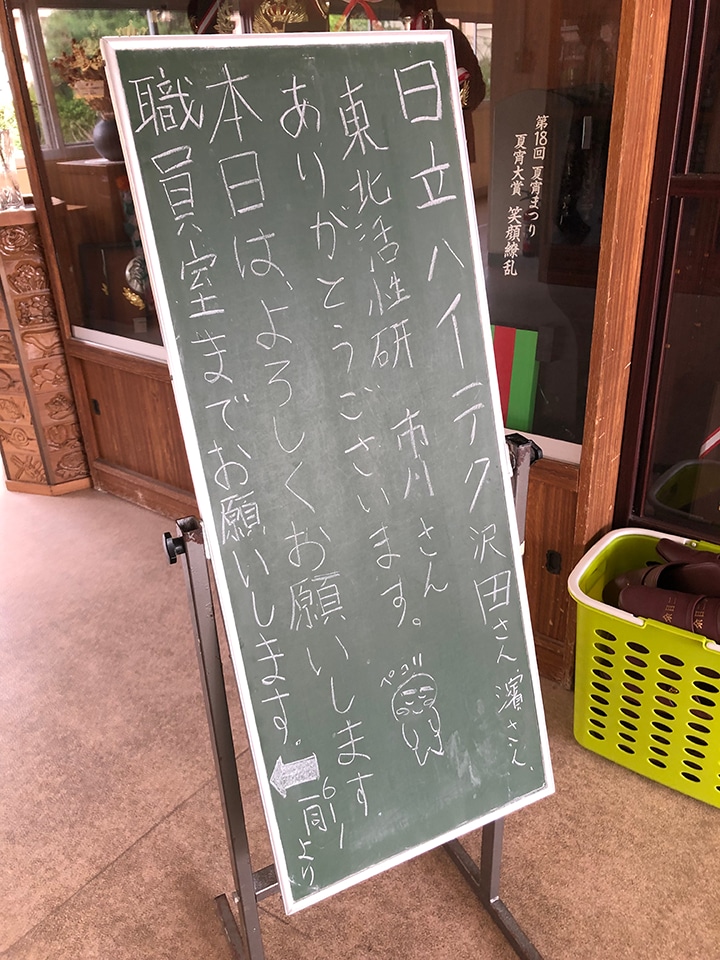 第18回 夏宵まつり
夏宵大賞 笑顔繚乱
日立ハイテク沢田さん、濱さん、
東北活性研 市川さん
ありがとうございます。
ペコリ
本日は、よろしくお願いします。
6-1 一同より
職員室までお願いします。